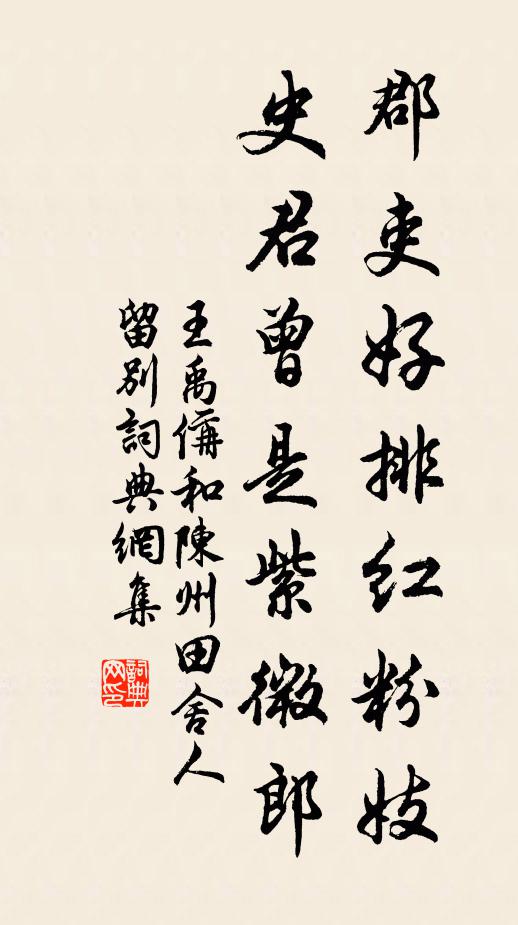 郡吏好排紅粉妓
史君曾是紫微郎
王禹偁和陳州田舍人
留別詞典網集
詞典
网印